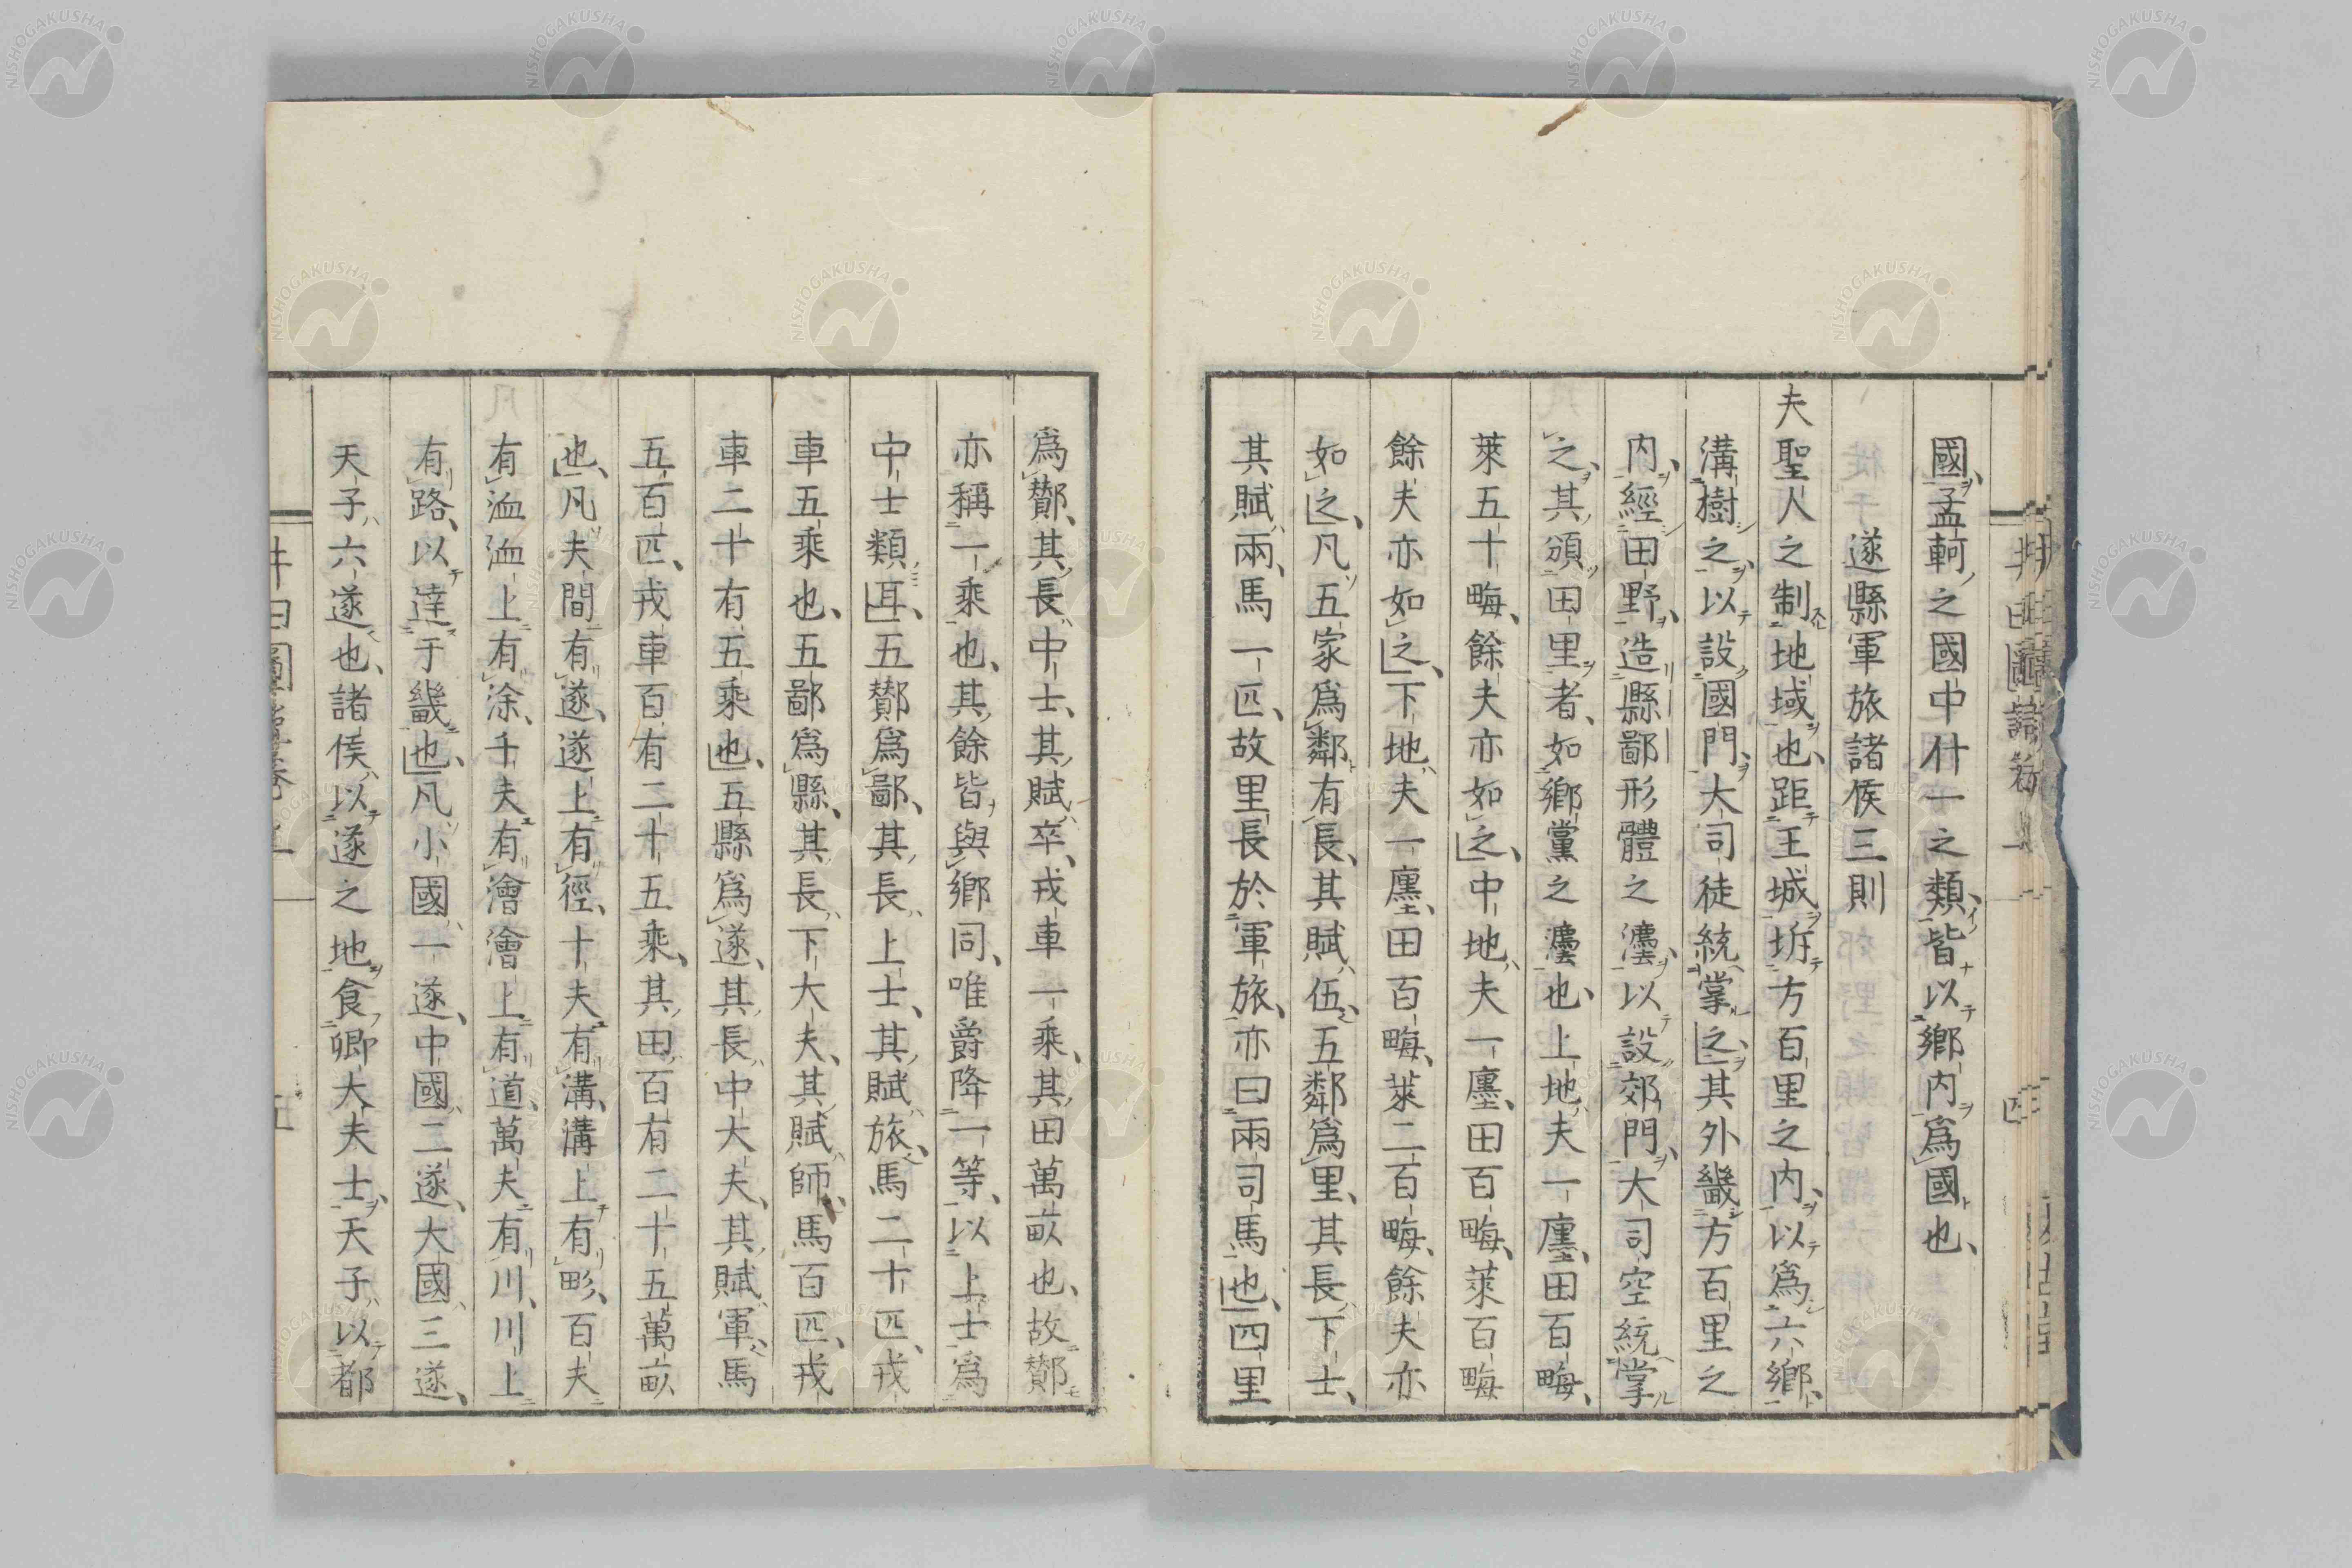 國孟軻之國中什一之類皆以鄉内爲國也
遂縣軍旅諸侯三則
夫聖人之制地域也距王城坼方百里之内以爲六鄉
溝樹之以設國門大司徒統掌之其外畿方百里之
内經田野造縣鄙形體之灋以設郊門大司空統掌
之其頒田里者如鄉黨之灋也上地夫一廛田百畮
萊五十畮餘夫亦如之中地夫一廛田百畮萊百畮
餘夫亦如之下地夫一廛田百畮萊二百畮餘夫亦
如之凡五家爲鄰有長其賦伍五鄰爲里其長下士
其賦兩馬一匹故里長於軍旅亦曰兩司馬也四里
爲酇其長中士其賦卒戎車一乘其田萬畝也故酇
亦稱一乘也其餘皆與鄉同唯爵降一等以上士爲
中士類耳五酇爲鄙其長上士其賦旅馬二十匹戎
車五乘也五鄙爲縣其長下大夫其賦師馬百匹戎
車二十有五乘也五縣爲遂其長中大夫其賦軍馬
五百匹戎車百有二十五乘其田百有二十五萬畝
也凡夫間有遂遂上有徑十夫有溝溝上有畛百夫
有洫洫上有涂千夫有澮澮上有道萬夫有川川上
有路以達于畿也凡小國一遂中國二遂大國三遂
天子六遂也諸侯以遂之地食卿大夫士天子以都
NISHOGAKUSHA